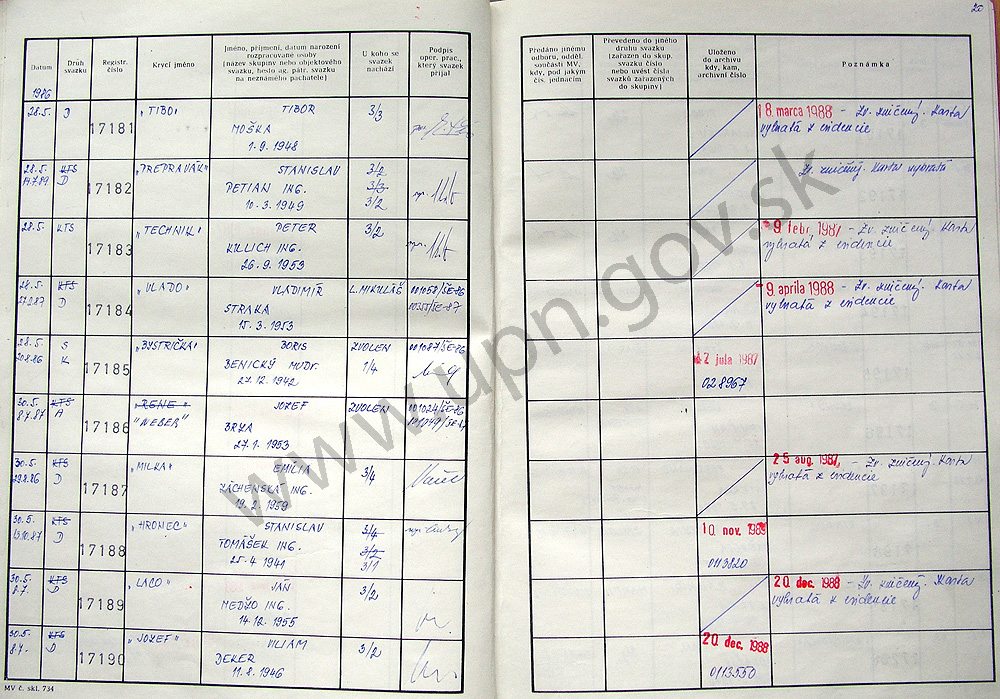 20
Datum
Druh svazku
Registr. číslo
Krycí jméno
Jméno, příjmení, datum narození rozpracované osoby (název skupiny nebo objektového svazku, heslo ag. pátr. svazku na neznámého pachatele)
U koho se svazek nachází
Podpis oper. prac., který svazek přijal
Předáno jinému odboru, odděl. součásti MV, kdy, pod jakým čís. jednacím
Převedeno do jiného druhu svazku (zařazen do skup. svazku číslo nebo uvést čísla svazků zařazených do skupiny)
Uloženo do archívu kdy, kam, archivní číslo
Poznámka
1986
28.5. D 17181 "TIBO" TIBOR 3/3
MOŠKA
1.9.1948
18. marca 1988 - Zv. zničený. Karta
vybratá z evidencie
28.5. KTS "PREPRAVÁK" STANISLAV 3/2
D 17182 PETIAN ING. 3/3
10.3.1949 3/2
Zv. zničený. Karta vybratá
28.5. KTS 17183 "TECHNIK" PETER 3/2
KILLICH ING.
26.9.1953
9. febr. 1987 - Zv. zničený. Karta
vybratá z evidencie
28.5. KTS "VLADO" VLADIMÍR L. MIKULÁŠ 001058/ŠE-86
D 17184 STRAKA
15.3.1953
9. apríla 1988 - Zv. zničený. Karta
vybratá z evidencie
28.5. S "BYSTRIČKA" BORIS ZVOLEN 001087/ŠE-86
20.8.86 K 17185 BENICKÝ MUDr. 1/4
27.12.1942
2 júla 1987
028967
30.5. KTS "RENE" JOZEF ZVOLEN 001024/ŠE-86
8.7.87 A 17186 "WEBER" BRYA
27.1.1953
30.5. KTS "MILKA" EMÍLIA 3/4
29.8.86 D 17187 ZÁCHENSKÁ ING.
19.2.1959
25 aug. 1987 - Zv. zničený. Karta
vybratá z evidencie
30.5. KTS "HRONEC" STANISLAV 3/4
13.10.87 D 17188 TOMÁŠEK ING. 3/2
25.4.1941 3/1
10. nov. 1989
0113820
30.5. KTS "LACO" JÁN 3/2
8.7. D 17189 MEDZO ING.
14.12.1955
20. dec. 1988 - Zv. zničený. Karta
vybratá z evidencie
30.5. KTS "JOZEF" VILIAM 3/2
D 17190 DEKER
11.8.1946
20. dec. 1988
0113550
MV č. skl. 734
www.upn.gov.sk